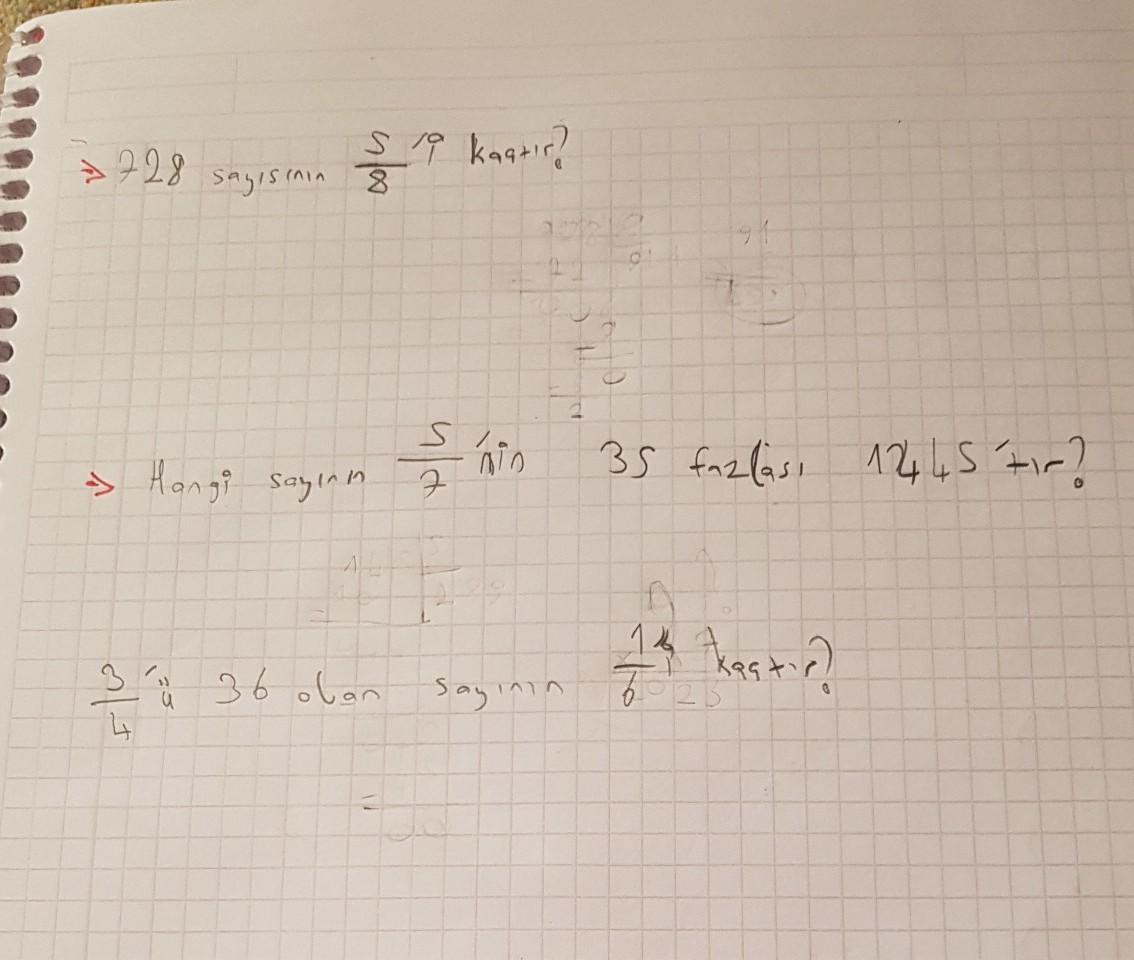 ⇒ 728 sayısının 5/8 'i kaçtır?
⇒ Hangi sayının 5/7 'nin 35 fazlası 1245 'tir?
3/4 'ü 36 olan sayının 1/6 kaçtır?